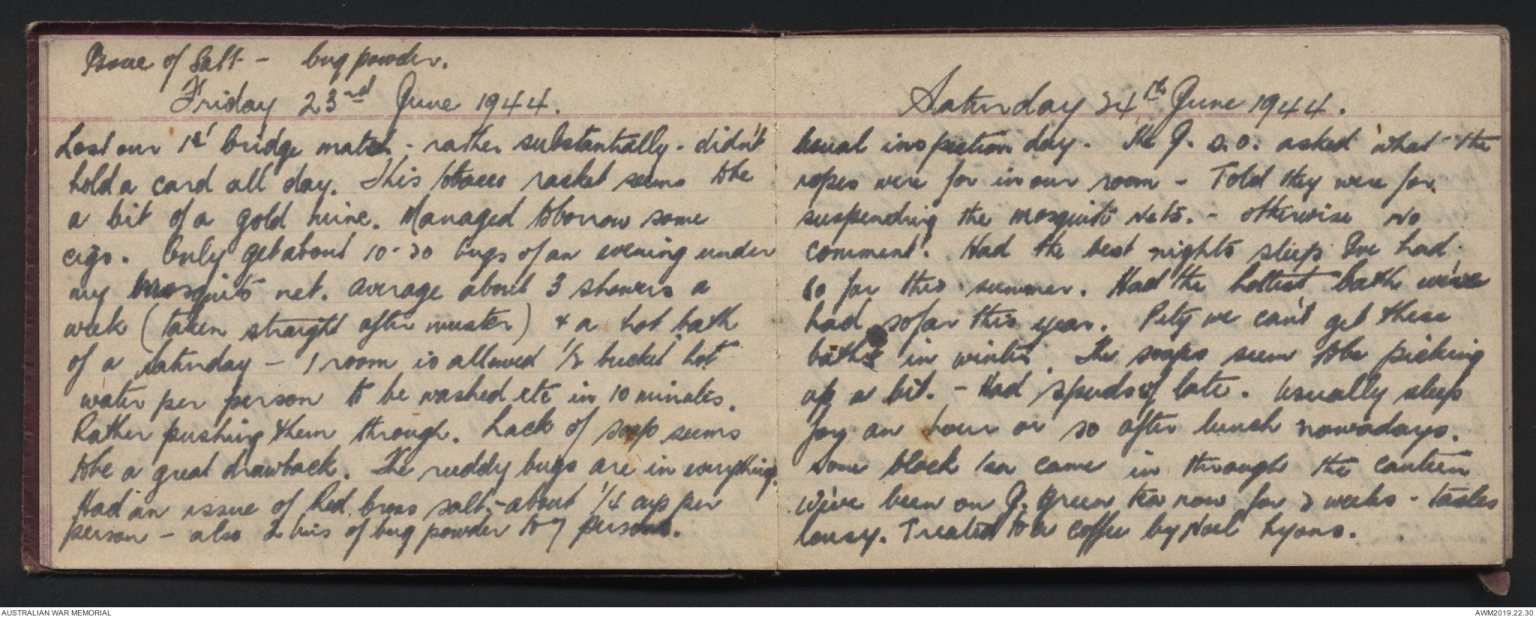 Issue of Salt - bug powder.
Friday 23rd June 1944.
Lost our 1st bridge match - rather substantially - didn't
hold a card all day. This tobacco racket seems to be
a bit of a gold mine. Managed to borrow some
cigs. Only get about 10-20 bugs of an evening under
my mosquito net. Average about 3 showers a
week (taken straight after muster) & a hot bath
of a Saturday - 1 room is allowed 1/2 bucket hot
water per person to be washed etc in 10 minutes.
Rather pushing them through. Lack of soap seems
to be a great drawback. The ruddy bugs are in everything.
Had an issue of Red Cross salt, - about 1/4 cup per
person - also 2 tins of bug powder to 7 persons.
Saturday 24th June 1944.
Usual inspection day. The J. O.O. asked what the
ropes were for in our room - Told they were for
suspending the mosquito nets. - otherwise no
comment. Had the best nights sleep I've had
so far this summer. Had the hottest bath we've
had so far this year. Pity we can't get these
baths in winter. The soaps seem to be picking
up a bit. - Had spuds of late. Usually sleep
for an hour or so after lunch nowadays.
Some black tea came in through the canteen
We've been on J. green tea now for 2 weeks - tastes
lousy. Treated to a coffee by Noel Lyons.
AUSTRALIAN WAR MEMORIAL
AWM2019.22.30